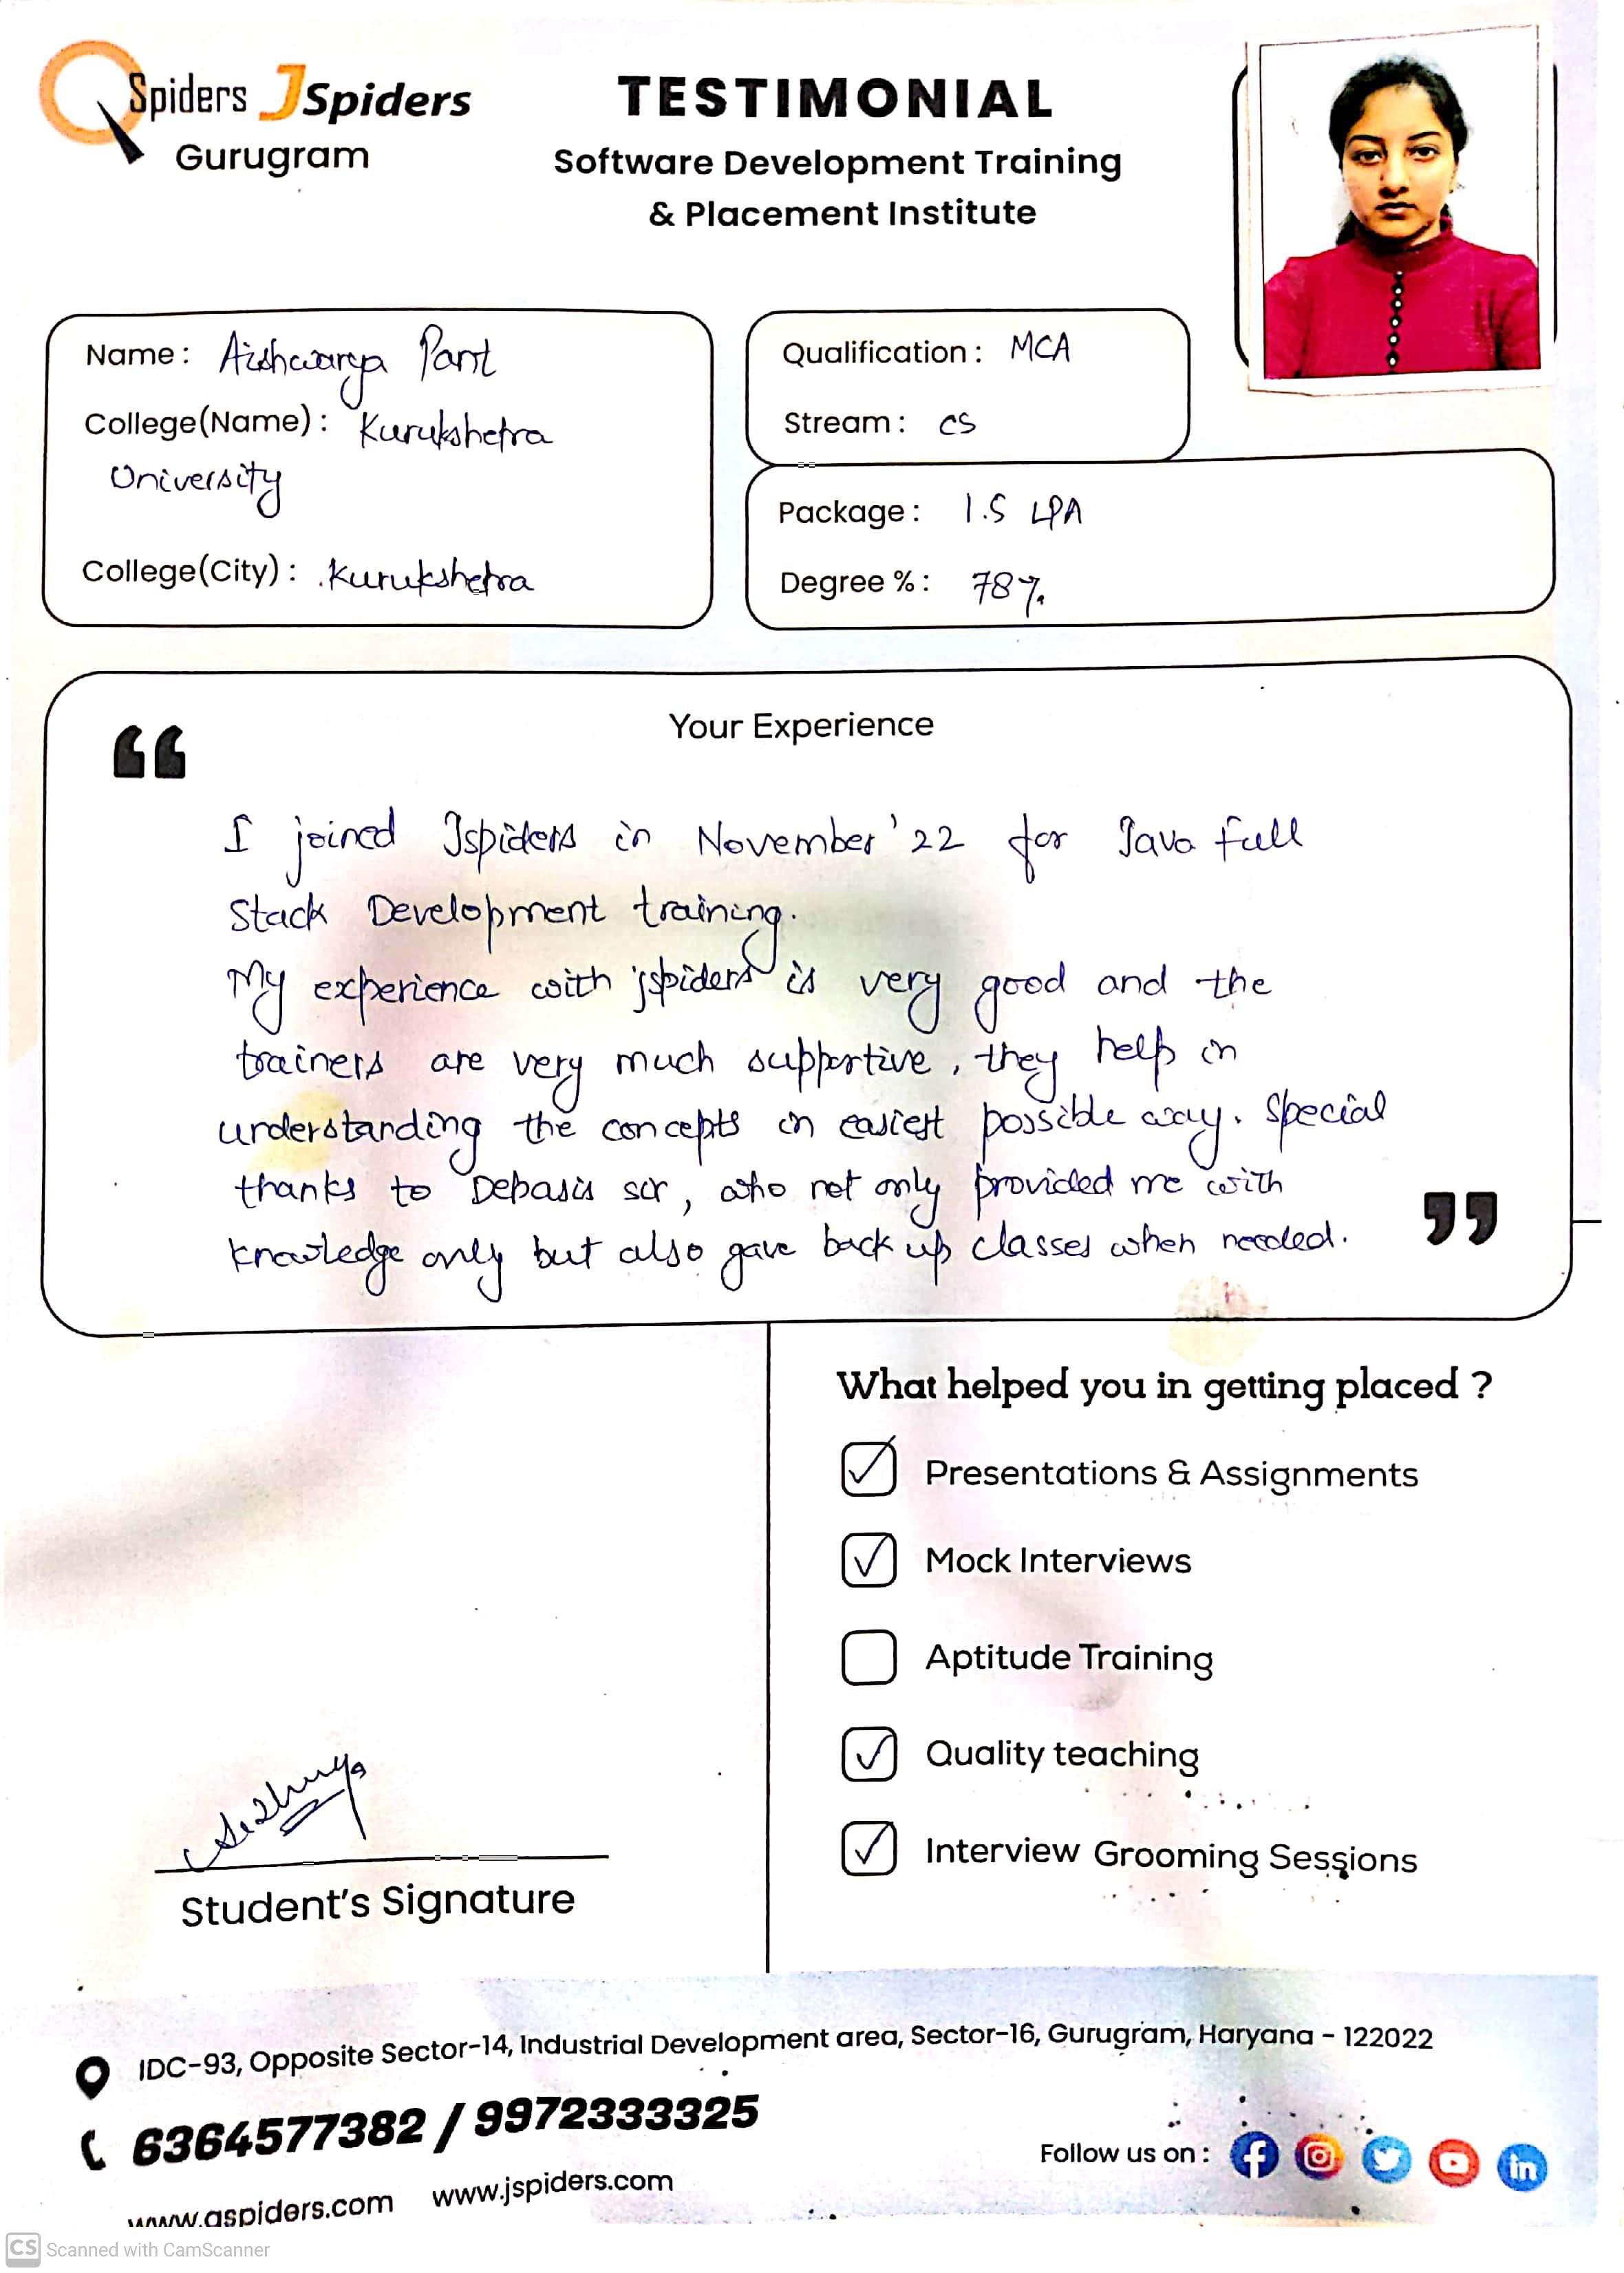 QSpiders JSpiders
Gurugram
TESTIMONIAL
Software Development Training
& Placement Institute
Name : Aishwarya Pant
College(Name) : Kurukshetra
University
College(City) : Kurukshetra
Qualification : MCA
Stream : CS
Package : 1.5 LPA
Degree % : 78%
Your Experience
“
I joined Jspiders in November '22 for Java Full
Stack Development training.
My experience with jspiders is very good and the
trainers are very much supportive, they help in
understanding the concepts in easiest possible way. Special
thanks to Debasis sir, who not only provided me with
knowledge only but also gave back up classes when needed.
”
What helped you in getting placed ?
Presentations & Assignments
Mock Interviews
Aptitude Training
Quality teaching
Interview Grooming Sessions
Student's Signature
IDC-93, Opposite Sector-14, Industrial Development area, Sector-16, Gurugram, Haryana - 122022
6364577382 / 9972333325
www.qspiders.com www.jspiders.com
Follow us on :
CS Scanned with CamScanner